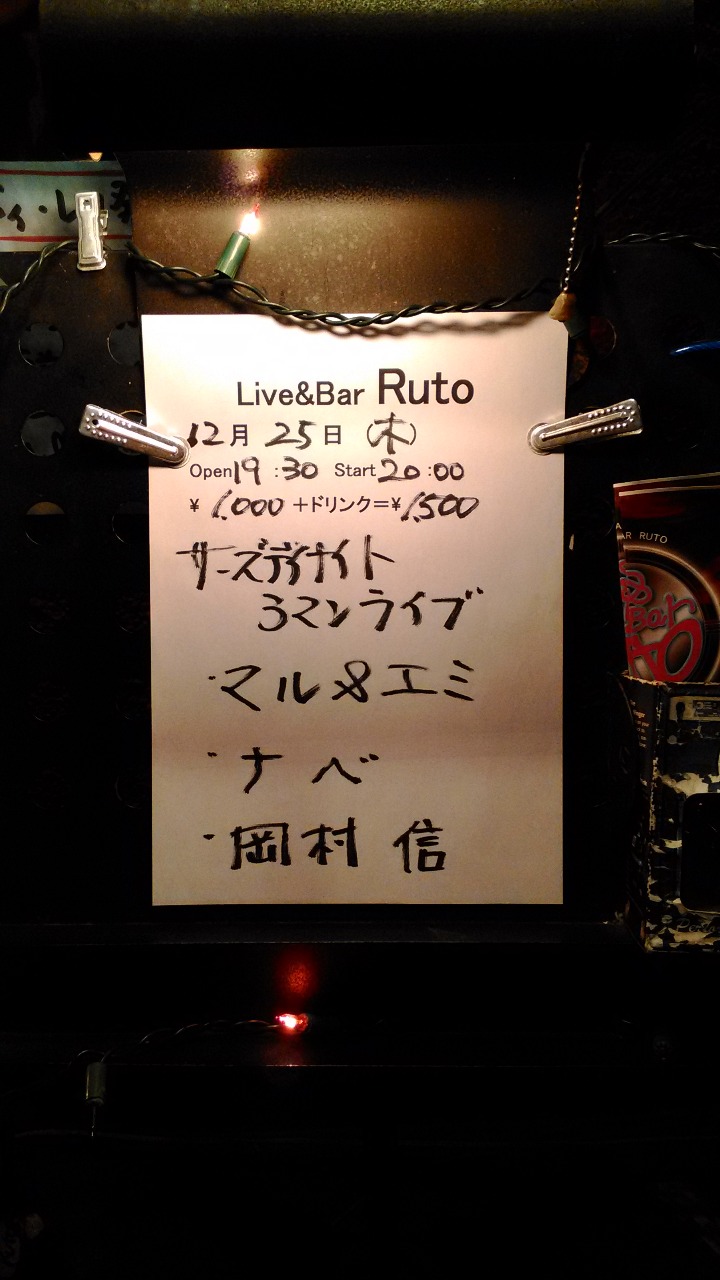 Live&Bar Ruto
12月 25日 (木)
Open19:30 Start20:00
¥ 1,000 +ドリンク=¥1,500
サーズデイナイト
3マンライブ
・マル&エミ
・ナベ
・岡村 信
AR RUTO
Bar